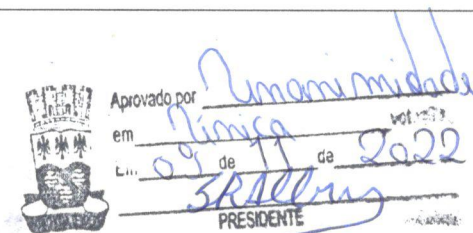 Aprovado por Unanimidade
em Única
Em 09 de 11 de 2022
PRESIDENTE